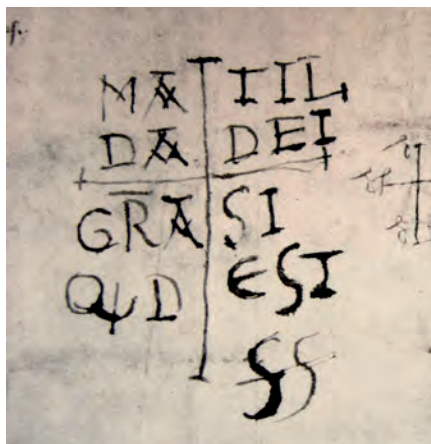 MĀ TIL
DĀ DEI
GR̄Ā SI
QVD EST
SS